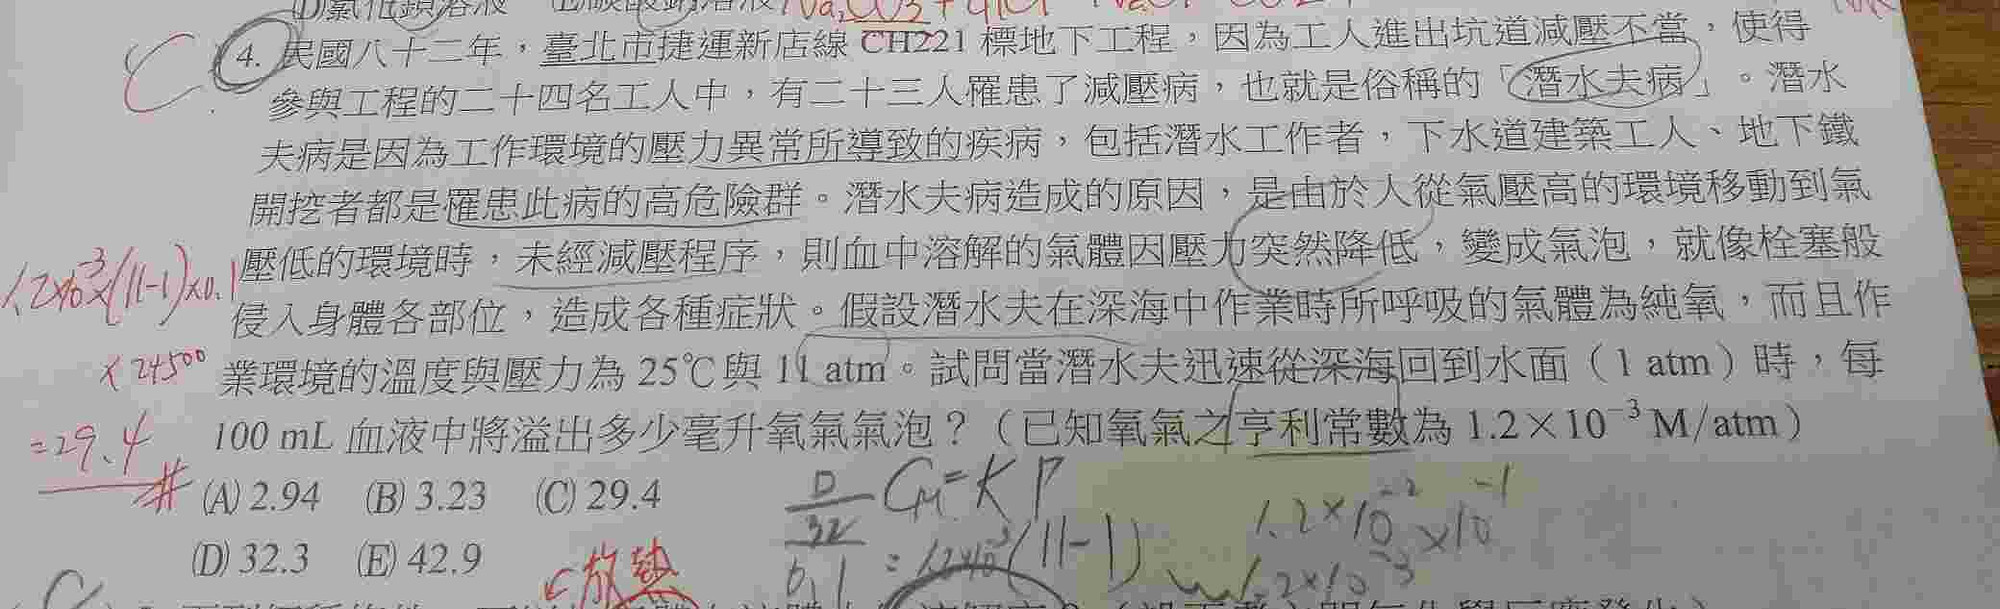 4. 民國八十二年，臺北市捷運新店線 CH221 標地下工程，因為工人進出坑道減壓不當，使得
參與工程的二十四名工人中，有二十三人罹患了減壓病，也就是俗稱的「潛水夫病」。潛水
夫病是因為工作環境的壓力異常所導致的疾病，包括潛水工作者，下水道建築工人、地下鐵
開挖者都是罹患此病的高危險群。潛水夫病造成的原因，是由於人從氣壓高的環境移動到氣
壓低的環境時，未經減壓程序，則血中溶解的氣體因壓力突然降低，變成氣泡，就像栓塞般
侵入身體各部位，造成各種症狀。假設潛水夫在深海中作業時所呼吸的氣體為純氧，而且作
業環境的溫度與壓力為 25℃與 11 atm。試問當潛水夫迅速從深海回到水面（1 atm）時，每
100 mL 血液中將溢出多少毫升氧氣氣泡？（已知氧氣之亨利常數為 1.2×10⁻³ M/atm）
(A) 2.94 (B) 3.23 (C) 29.4
(D) 32.3 (E) 42.9
C
1.2×10⁻³×(11-1)×0.1
×24500
=29.4 #
C_M=KP
=1.2×10⁻³(11-1)
1.2×10⁻²×10⁻¹
1.2×10⁻³
放熱